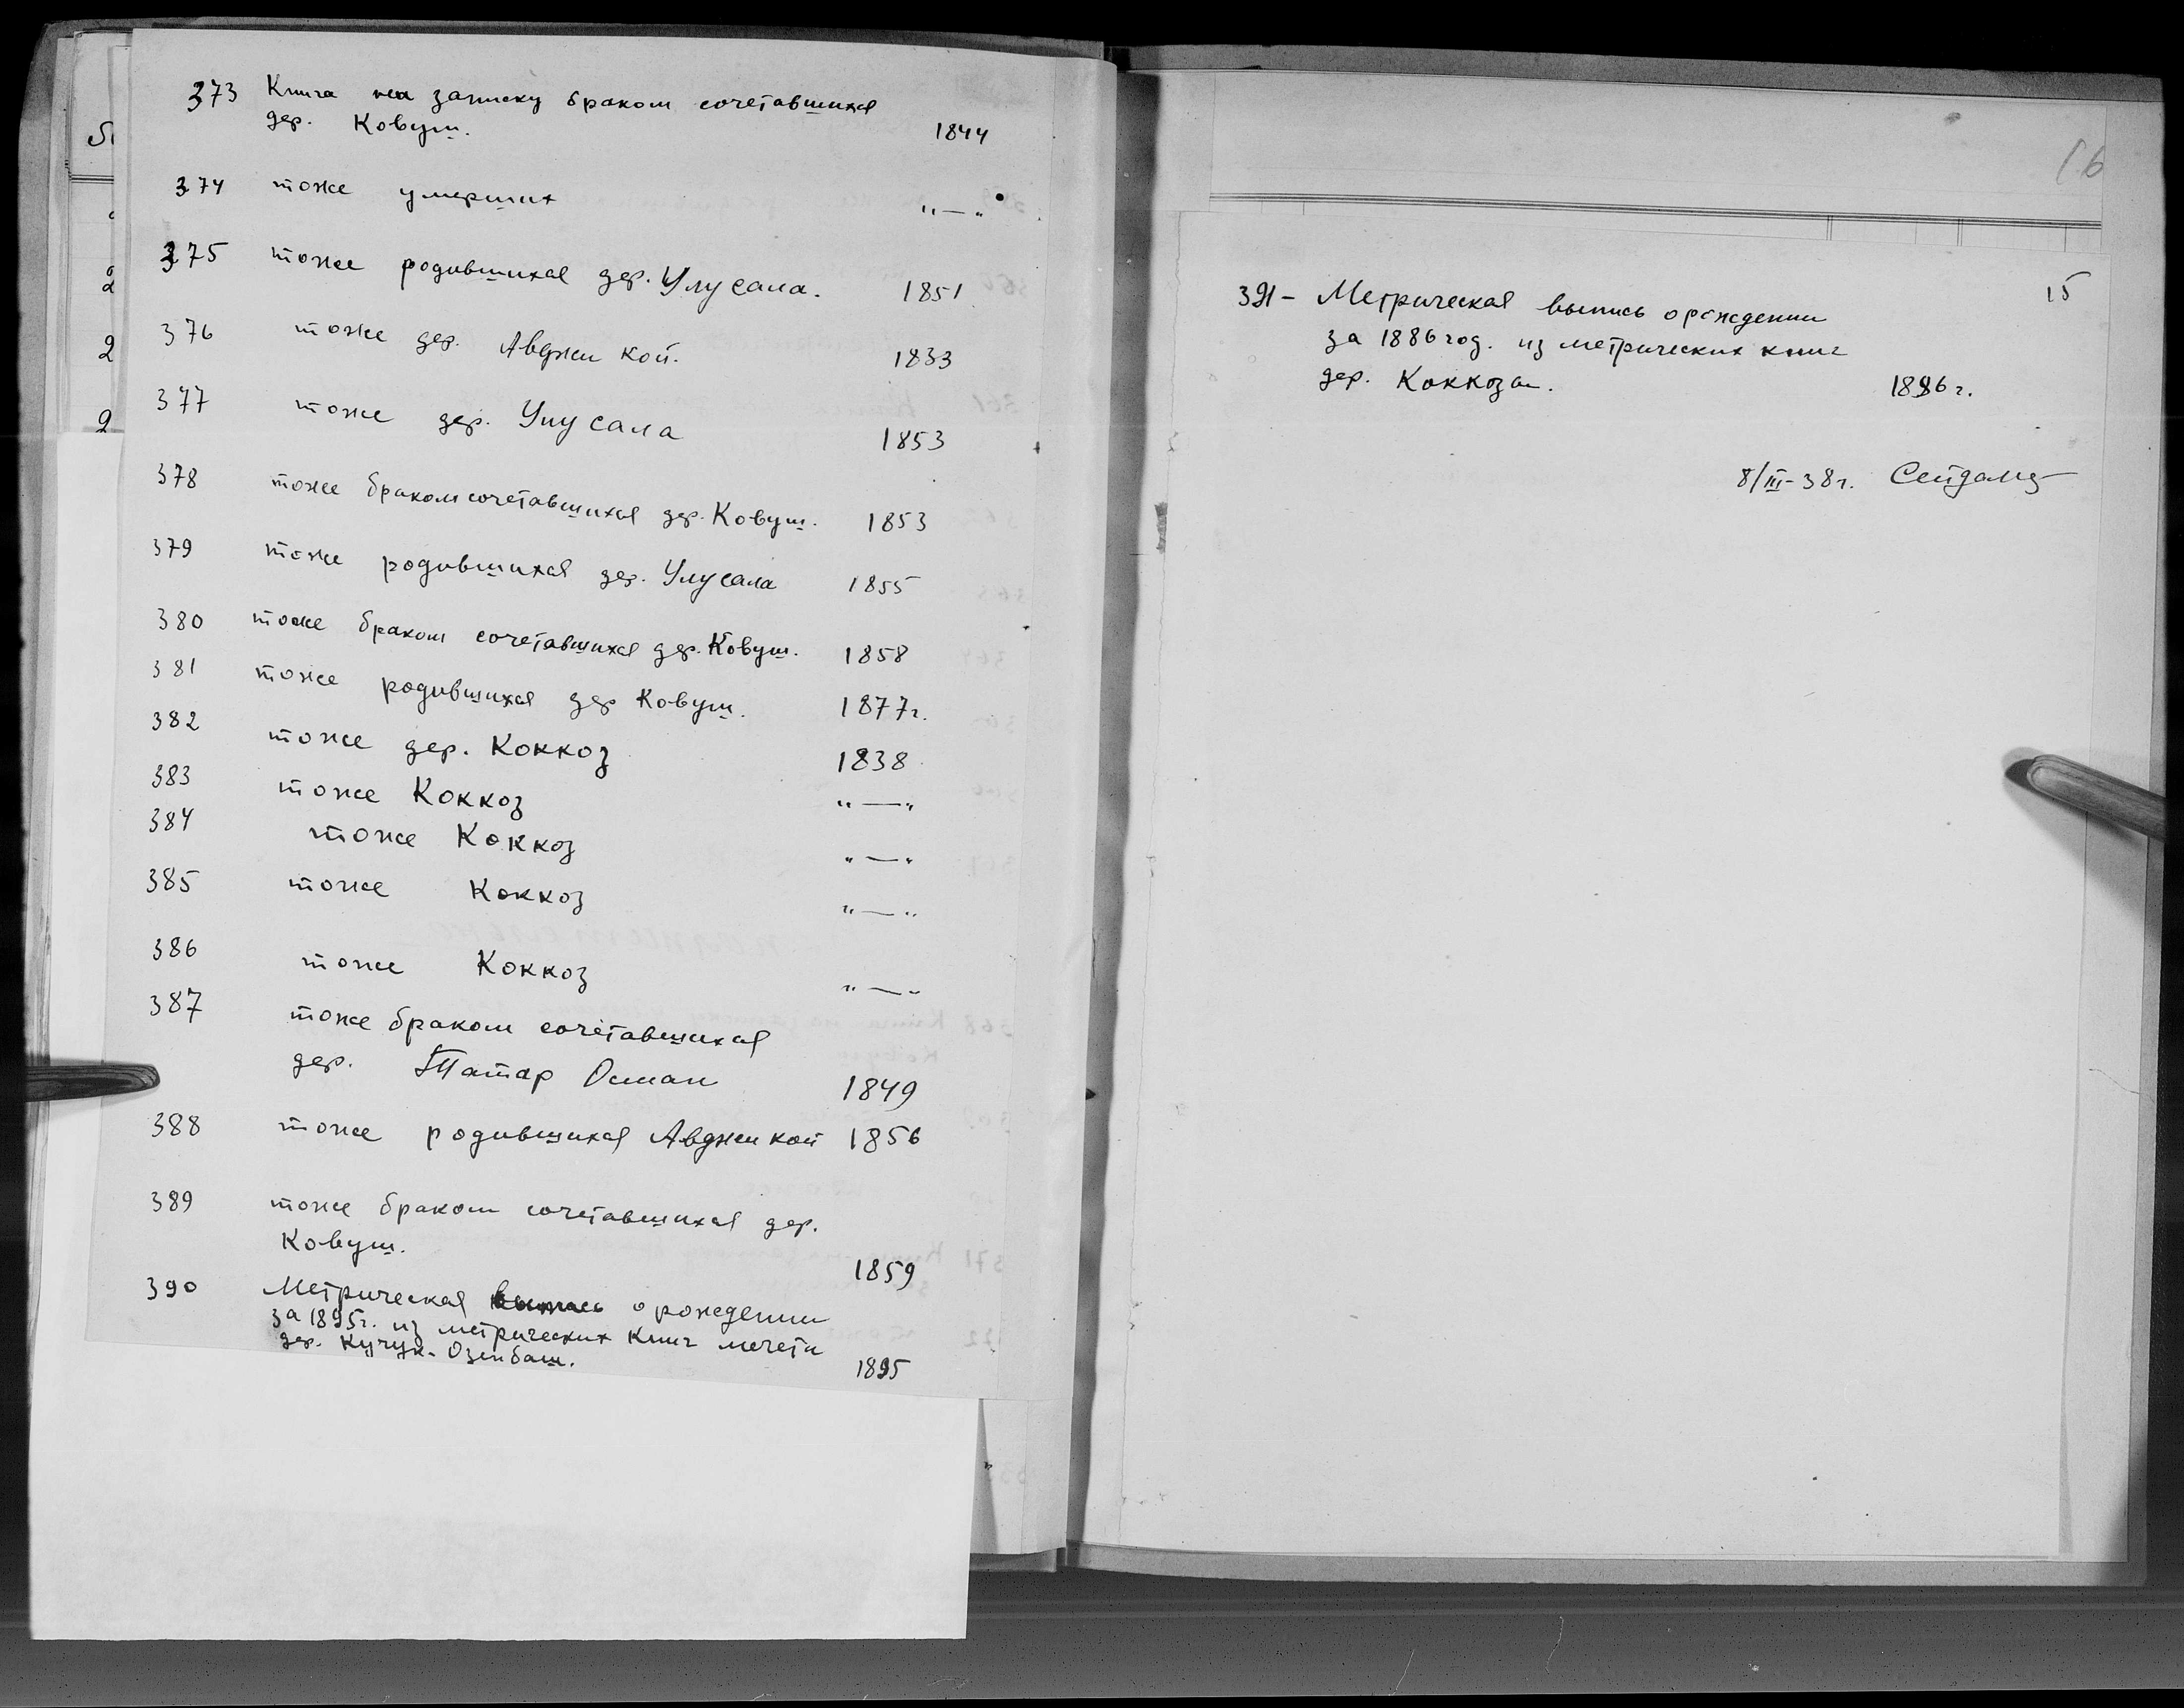 373 Книга на записку браком сочетавшихся
дер. Ковуш. 1844
374 тоже умерших "—"
375 тоже родившихся дер. Улусала. 1851
376 тоже дер. Авджи кой. 1833
377 тоже дер. Улусала 1853
378 тоже браком сочетавшихся дер. Ковуш. 1853
379 тоже родившихся дер. Улусала 1855
380 тоже браком сочетавшихся дер. Ковуш. 1858
381 тоже родившихся дер Ковуш. 1877г.
382 тоже дер. Коккоз 1838
383 тоже Коккоз "—"
384 тоже Коккоз "—"
385 тоже Коккоз "—"
386 тоже Коккоз "—"
387 тоже браком сочетавшихся
дер. Татар Осман 1849
388 тоже родившихся Авджи кой 1856
389 тоже браком сочетавшихся дер.
Ковуш. 1859
390 Метрическая выпись о рождении
за 1895г. из метрических книг мечети
дер. Кучук-Озенбаш. 1895
16
15
391- Метрическая выпись о рождении
за 1886 год. из метрических книг
дер. Коккозы. 1886 г.
8/III-38г.